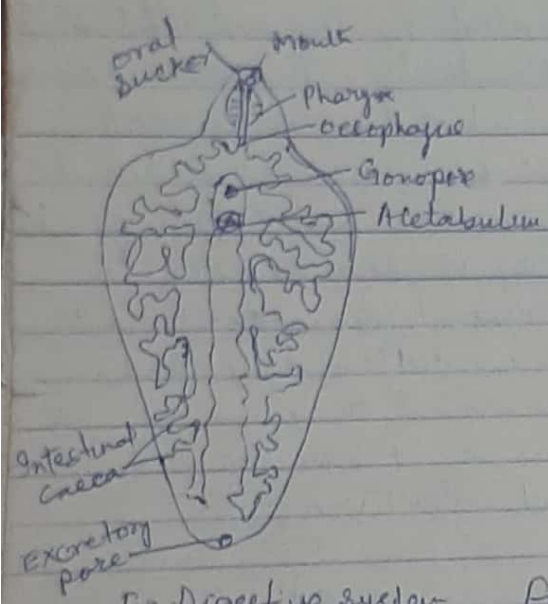 Oral
Sucker
Mouth
Pharynx
Oesophague
Gonopore
Acetabulum
Intestinal
Caeca
Excretory
pore
Digestive system